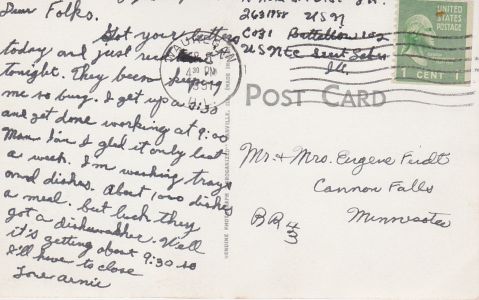 Dear Folks.
Got your letter
today and just
tonight. They been keeping
me so busy. I get up at 4:30
and get done working at 9:00
Man I'm glad it only last
a week. I'm washing trays
and dishes. About 1000 dishes
a meal. but luck they
got a dishwasher. Well
it's getting about 9:30 so
I'll have to close
Love Arnie
U S N
Co 31 Battalion
U S N T C Great Lakes
Ill.
4 30 PM
1951
UNITED STATES
POSTAGE
1 CENT 1
POST CARD
GENUINE PHOTOGRAPH
Mr. & Mrs. Eugene Feidt
Cannon Falls
Minnesota